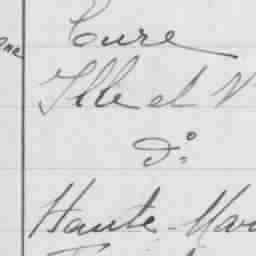 Eure
Ille et V
d°
Haute-Mar